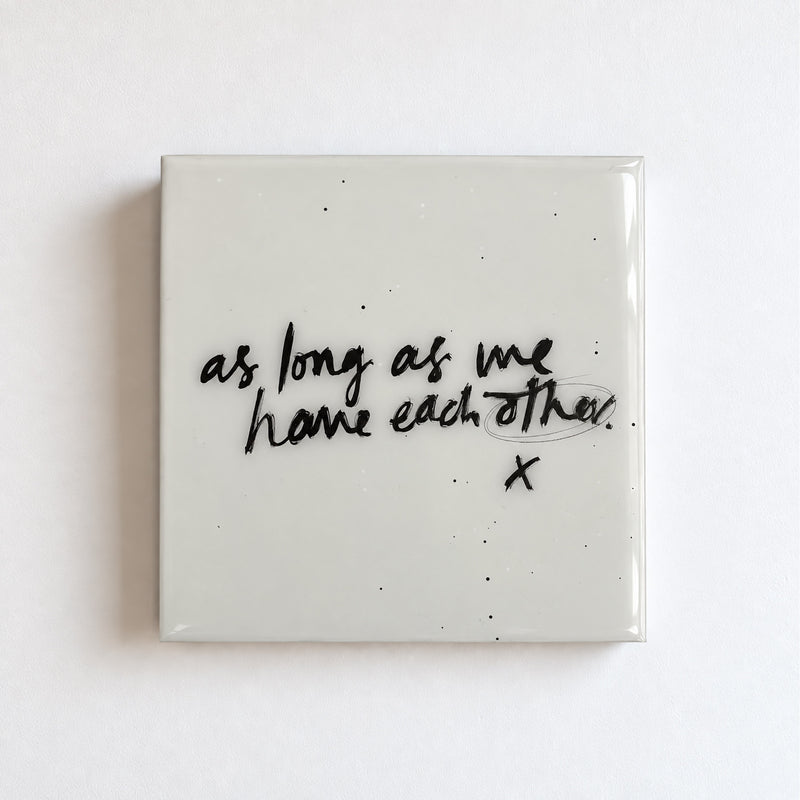 as long as we
have each other.
x